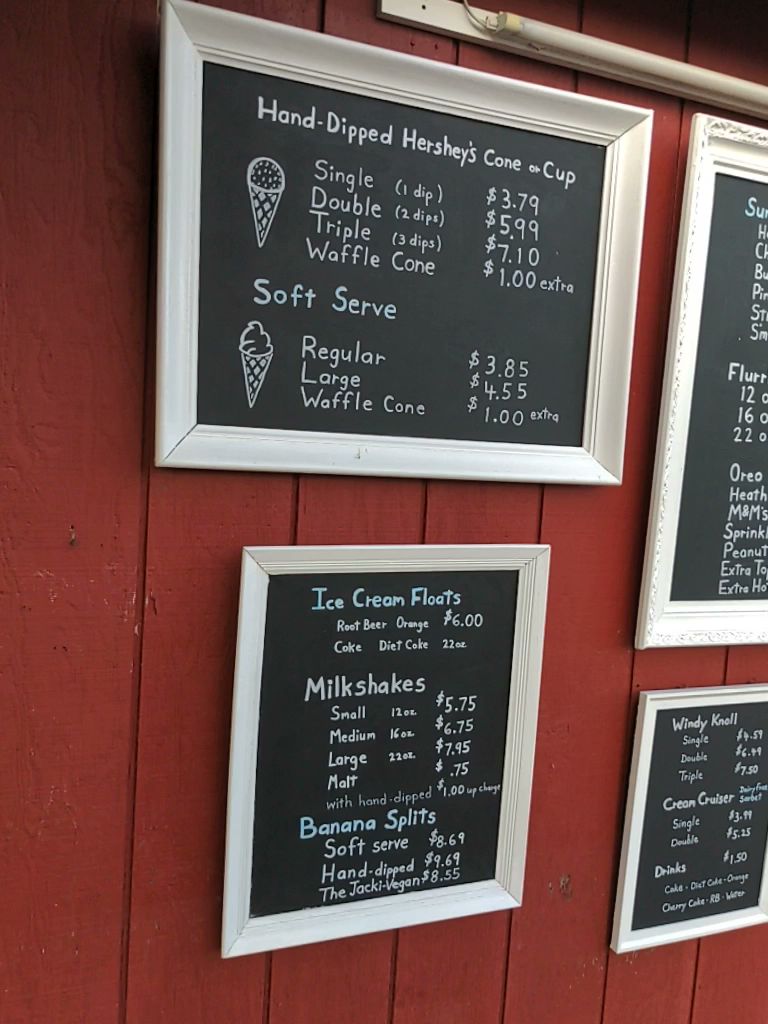 Hand-Dipped Hershey's Cone or Cup
Single (1 dip) $3.79
Double (2 dips) $5.99
Triple (3 dips) $7.10
Waffle Cone $1.00 extra
Soft Serve
Regular $3.85
Large $4.55
Waffle Cone $1.00 extra
Ice Cream Floats
Root Beer Orange $6.00
Coke Diet Coke 22oz.
Milkshakes
Small 12oz. $5.75
Medium 16oz. $6.75
Large 22oz. $7.95
Malt $.75
with hand-dipped $1.00 up charge
Banana Splits
Soft serve $8.69
Hand-dipped $9.69
The Jacki-Vegan $8.55
Flurr
12 o
16 o
22 o
Oreo
Heath
M&M's
Sprinkl
Peanut
Extra To
Extra Ho
Windy Knoll
Single $4.59
Double $6.49
Triple $7.50
Cream Cruiser Dairy Free Sorbet
Single $3.99
Double $5.25
Drinks $1.50
Coke - Diet Coke - Orange
Cherry Coke - RB - Water